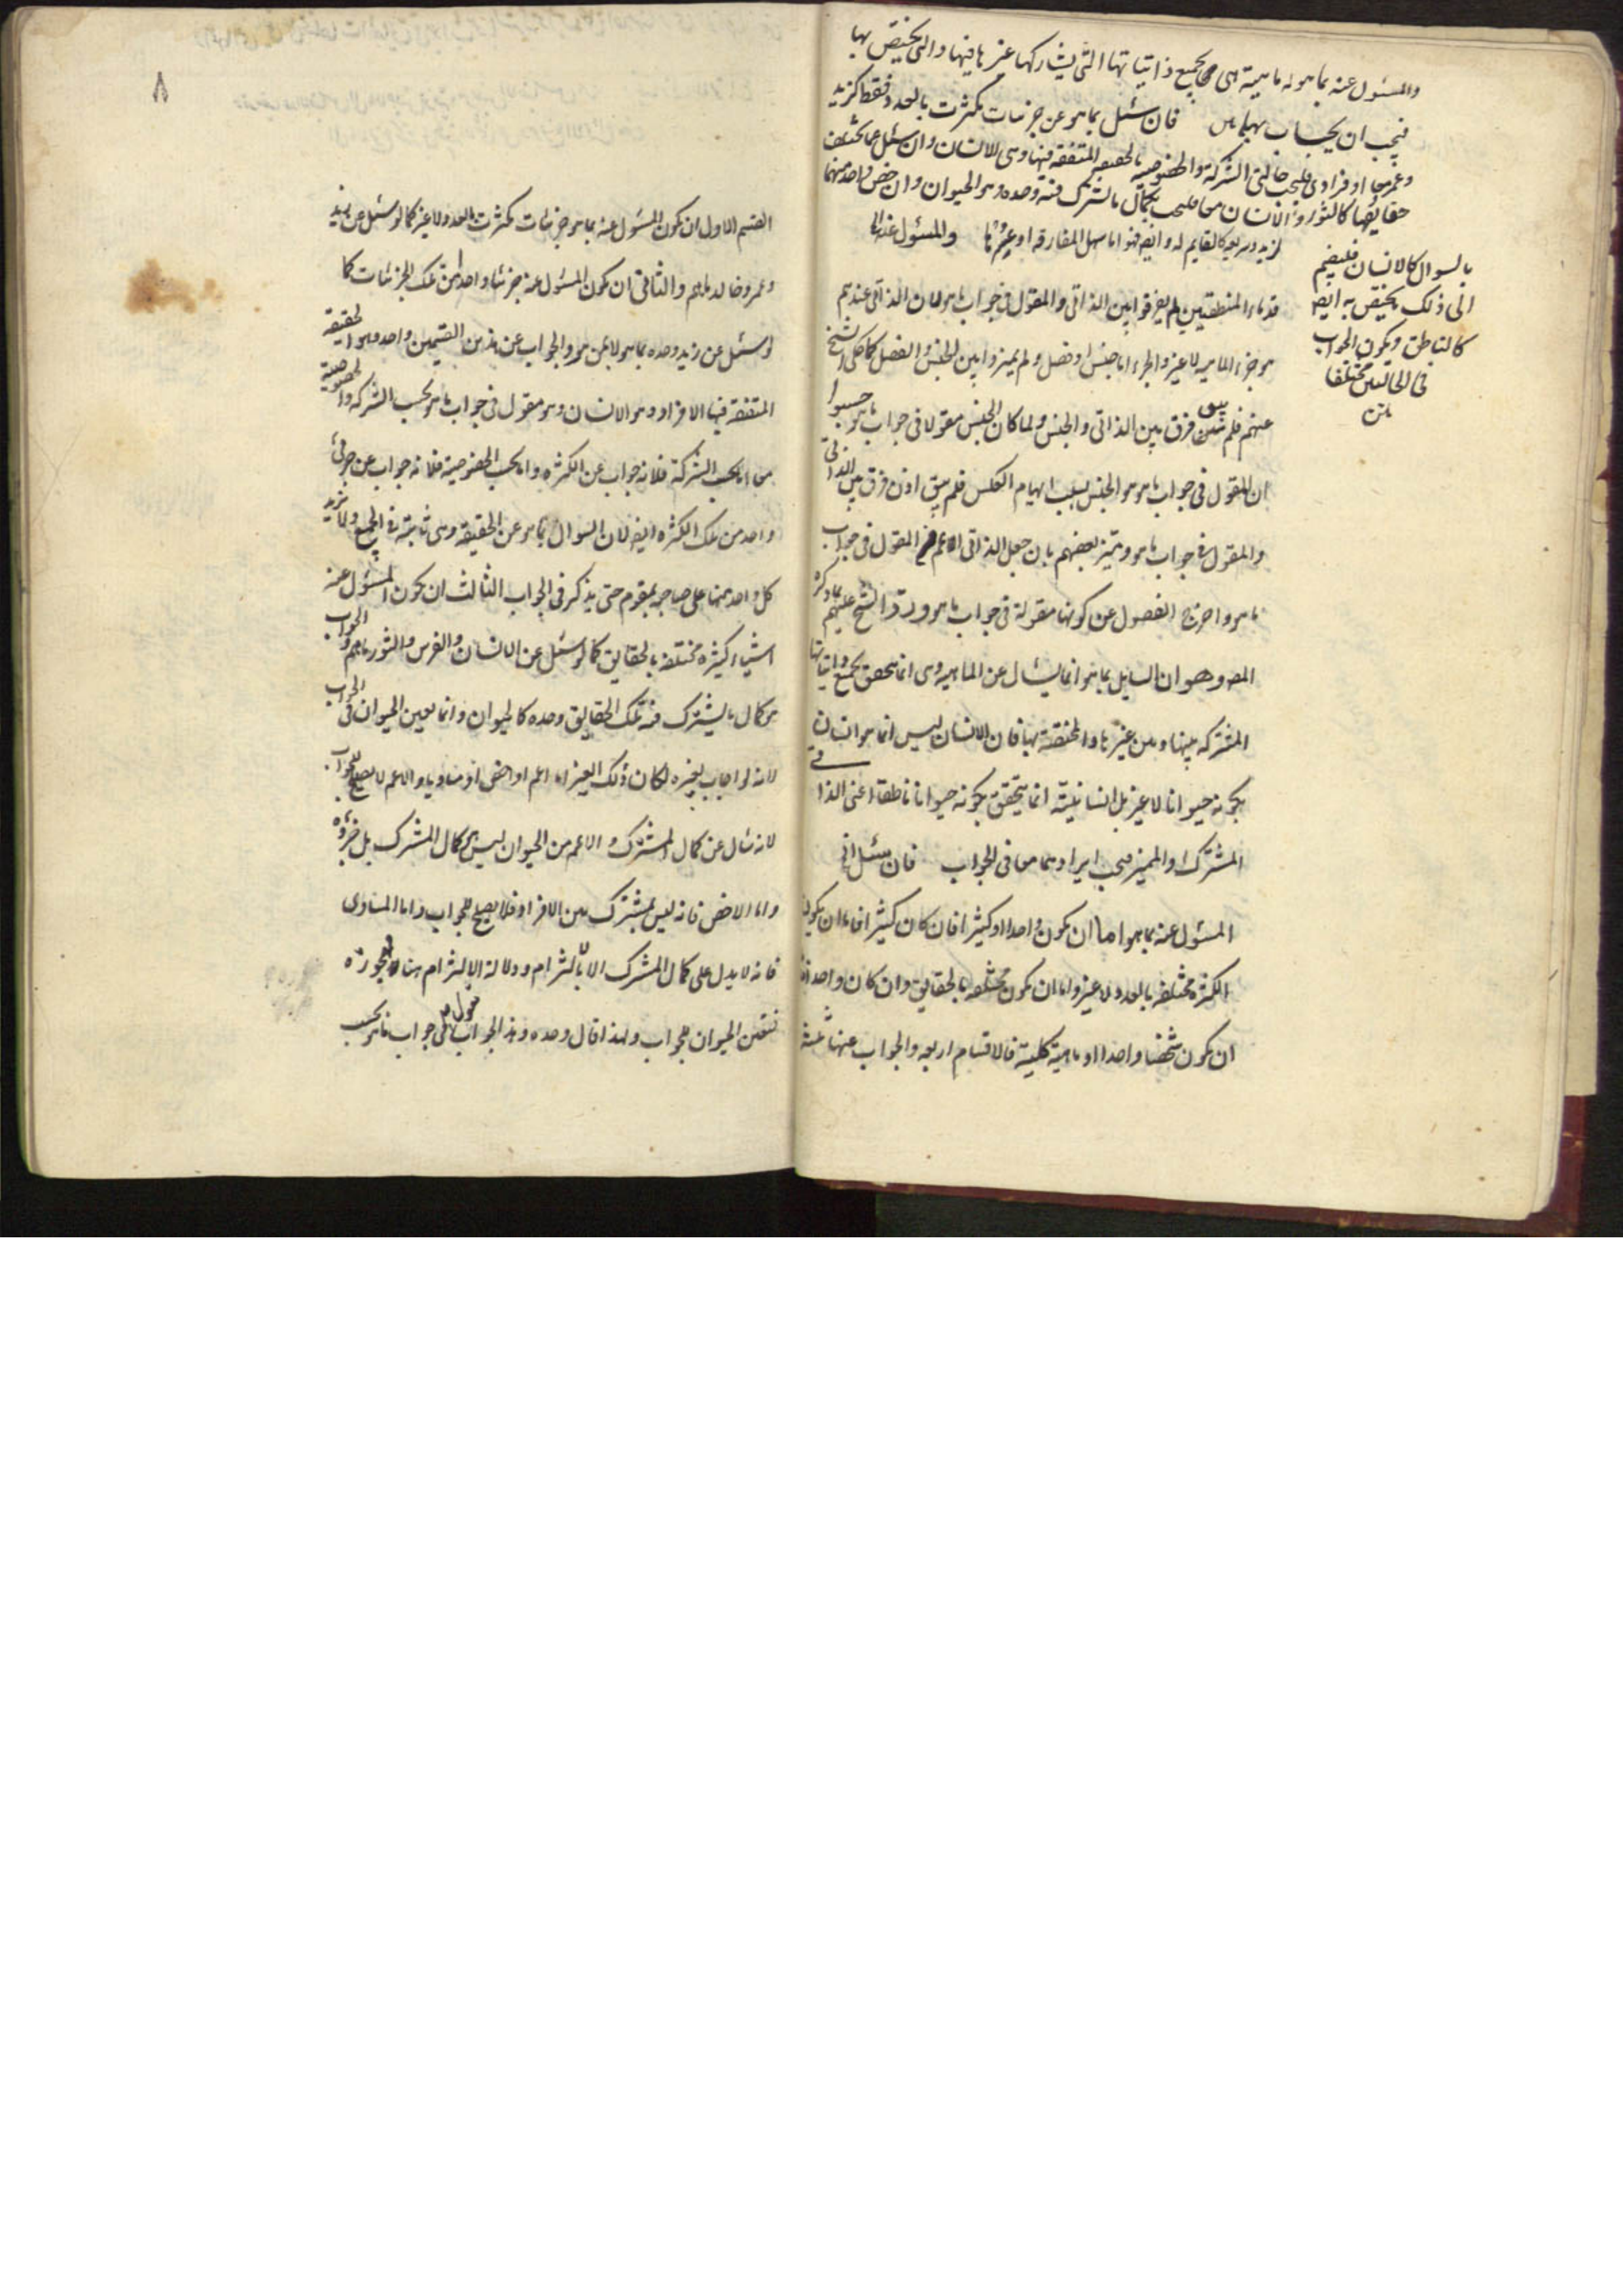 والمسئول عنه بما هو له ماهية هى بجميع ذاتياتها التى يشاركها غيرها فيها والتى يختص بها
فيجب ان يجاب بها فان سئل بما هو عن جزئيات تكثرت بالعدد فقط كزيد
وعمرو معا او فرادى فليجب حالتى الشركة والخصوصية المتفقة فيها وهى الانسان وان سئل عما يختلف
حقايقها كالثور والانسان معا فليجب بكمال ما تشترك فيه وحده وهو الحيوان وان خص واحد منهما
بالسوال كالانسان فليضم
الى ذلك ما يختص به ايضا
كالناطق ويكون الجواب
فى الحالتين مختلفا
متن
والمسئول عنه بما
قدماء المنطقيين لم يفرقوا بين الذاتى والمقول فى جواب ما هو لان الذاتى عندهم
هو جزء الماهية لا غير والجزء اما جنس او فصل ولم يميزوا بين الجنس والفصل كما حكى الشيخ
عنهم فلم يبق فرق بين الذاتى والجنس ولما كان الجنس مقولا فى جواب ما هو حسبوا
ان المقول فى جواب ما هو هو الجنس بسبب ايهام العكس فلم يبق اذن فرق بين الذاتى
والمقول فى جواب ما هو وتميز بعضهم بان جعل الذاتى الاعم هو المقول فى جواب
ما هو واخرج الفصول عن كونها مقولة فى جواب ما هو ورد الشيخ عليهم بما ذكره
المص وهو ان السايل بما هو انما يسئال عن الماهية وهى انما تتحقق بجميع ذاتياتها
المشتركة بينها وبين غيرها والمختصة بها فان الانسان ليس انما هو انسان
بكونه حيوانا لا غير بل انسانيته انما يتحقق بكونه حيوانا ناطقا اعنى الذاتى
المشترك والمميز فيجب ايرادهما معا فى الجواب فان سئل الى
المسئول عنه بما هو اما ان يكون واحدا او كثيرا فان كان كثيرا فاما ان يكون
الكثرة مختلفة بالعدد لا غير واما ان يكون مختلفة بالحقايق وان كان واحدا فاما
ان يكون شخصا واحدا او ماهية كلية فالاقسام اربعة والجواب عنها ثلثة
٨
القسم الاول ان يكون المسئول عنه بما هو جزئيات تكثرت بالعدد ولا غير كما لو سئل عن زيد
وعمرو وخالد ما هم والثانى ان يكون المسئول عنه جزئيا واحدا من تلك الجزئيات كما
لو سئل عن زيد وحده بما هو لا بمن هو والجواب عن هذين القسمين واحد وهو الحقيقة
المتفقة فيها الافراد وهو الانسان وهو مقول فى جواب ما هو بحسب الشركة والخصوصية
معا اما بحسب الشركة فلانه جواب عن الكثرة واما بحسب الخصوصية فلانه جواب عن جزئى
واحد من تلك الكثرة ايضا لان السوال بما هو عن الحقيقة وهى ثابتة فى الجميع ولما يزيد
كل واحد منها على صاحبه بمقوم حتى يذكر فى الجواب الثالث ان يكون المسئول عنه
اشياء كثيرة مختلفة بالحقايق كما لو سئل عن الانسان والفرس والثور ما هم والجواب
هو كمال ما يشترك فيه تلك الحقايق وحده كالحيوان وانما يعين الحيوان فى الجواب
لانه لو اجاب بغيره لكان ذلك الغير اما اعم او اخص او مساويا والاعم لا يصلح للجواب
لانه سال عن كمال المشترك والاعم من الحيوان ليس كمال المشترك بل جزؤه
واما الاخص فانه ليس بمشترك بين الافراد فلا يصلح للجواب واما المساوى
فانه لا يدل على كمال المشترك الا بالتزام ودلالة الالتزام هنا مهجورة
فتعين الحيوان للجواب ولهذا قال وحده وهذا الجواب مقول فى جواب ما هو بحسب